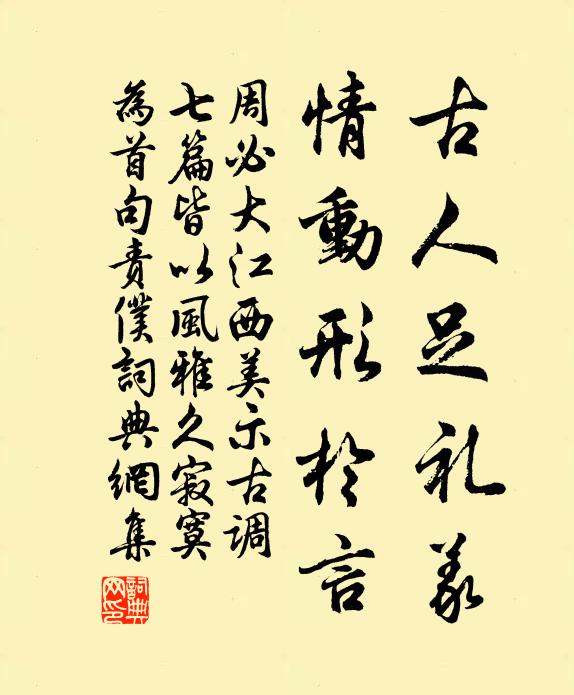 古人足礼义
情動形於言
周必大江西美示古調
七篇皆以風雅久寂寞
為首句责僕詞典網集
詞典网印